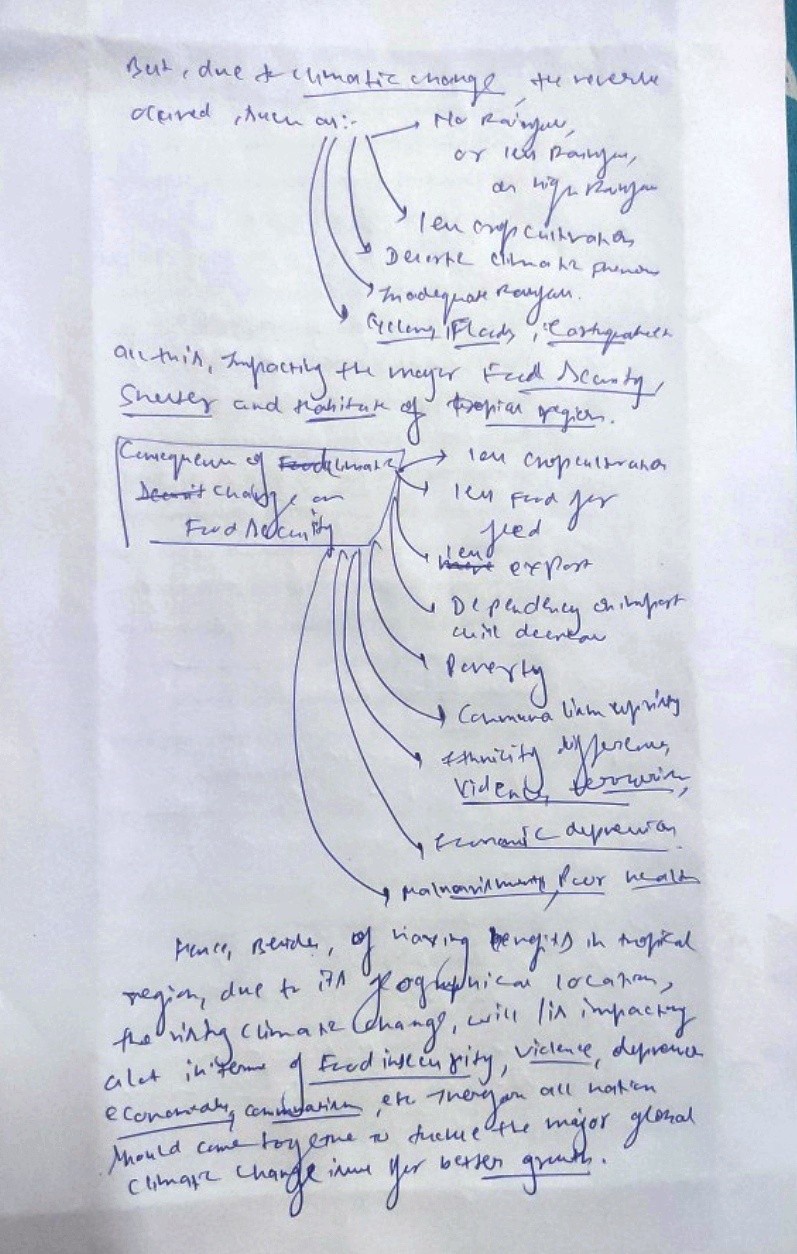 But, due to climatic change, the reverse
occured, such as:-
No Rainfall,
or less Rainfall,
or high Rainfall
less crop cultivation
Deserte climate phenom
Inadequate Rainfall.
Cyclone, Floods, Earthquakes
all this, Impacting the major Food Security,
Shelter and Habitate of tropical region.
Consequence of Climate
Change on
Food Security
less crop cultivation
less Food for
feed
less export
Dependency on import
will decrease
Poverty
Communalism uprising
Ethnicity differences,
Violence, terrorism,
Economic depression
Malnourishment, Poor health
Hence, Besides, of having benefits in tropical
region, due to its geographical location,
the rising climate change, will / is impacting
alot in terms of Food insecurity, violence, depression
economically, communalism, etc. Therefore all nation
should come together to the major global
climate change issue for better growth.